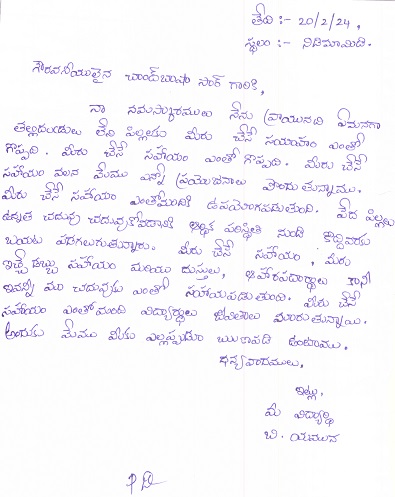 తేది :- 20/2/24,
స్థలం :- నిడిమామిడి.
గౌరవనీయులైన చాంద్‌బాషా సార్ గారికి,
నా నమస్కారములు నేను వ్రాయునది ఏమనగా
తల్లిదండ్రులు లేని పిల్లలకు మీరు చేసే సహాయం ఎంతో
గొప్పది. మీరు చేసే సహాయం ఎంతో గొప్పది. మీరు చేసే
సహాయం వలన మేము ఎన్నో ప్రయోజనాలు పొందుతున్నాము.
మీరు చేసే సహాయం ఎంతోమందికి ఉపయోగపడుతుంది. పేద పిల్లలు
ఉన్నత చదువు చదువుకోవడానికి ఆర్థిక పరిస్థితి నుండి
బయట పడగలుగుతున్నారు. మీరు చేసే సహాయం, మీరు
ఇచ్చే డబ్బు సహాయం మరియు దుస్తులు, ఆహారపదార్థాలు కానీ
ఇవన్నీ మా చదువుకు ఎంతో సహాయపడుతుంది. మీరు చేసే
సహాయం ఎంతోమంది విద్యార్థుల జీవితాలు మారుతున్నాయి.
అందుకు మేము మీకు ఎల్లప్పుడూ ఋణపడి ఉంటాము.
ధన్యవాదములు,
ఇట్లు,
మీ విద్యార్థి
బి. యమున